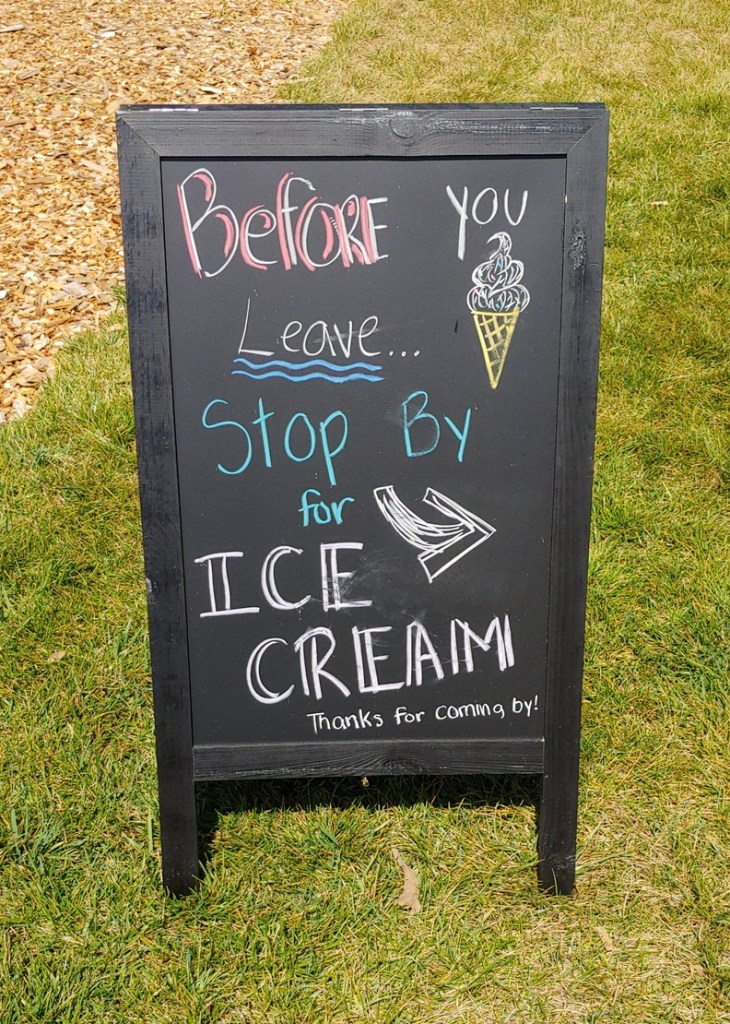 Before YOU
Leave...
Stop By
for
ICE
CREAM
Thanks for coming by!